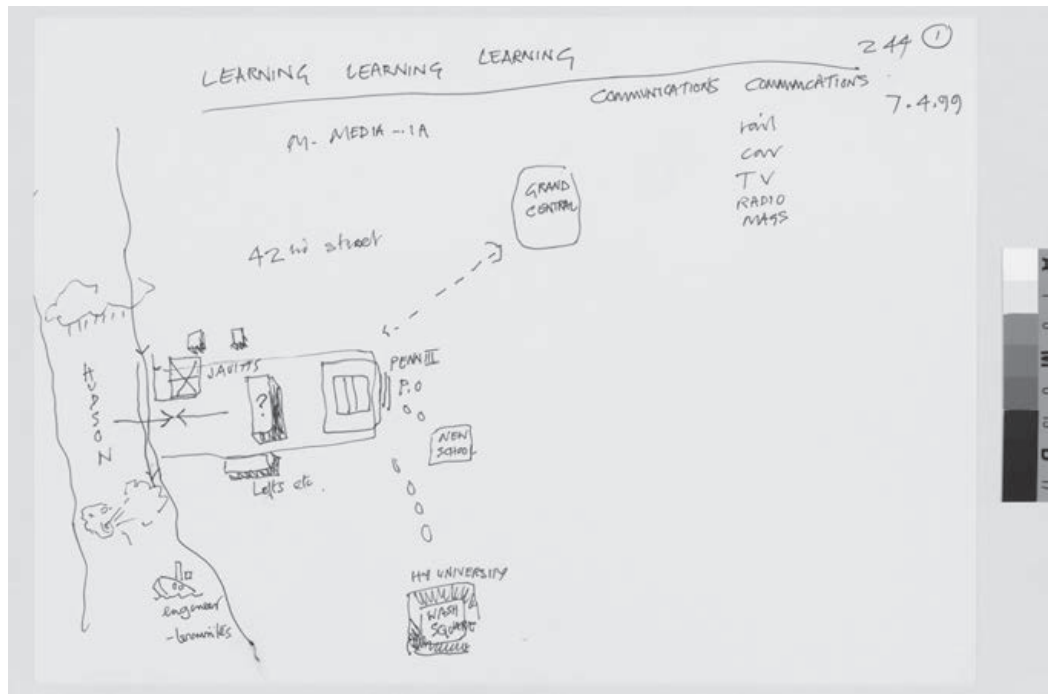 244 ①
LEARNING LEARNING LEARNING
COMMUNICATIONS COMMMCATIONS
7.4.99
MEDIA
rail
car
TV
RADIO
MAGS
GRAND
CENTRAL
42 nd street
JAVITTS
PENN III
P.O
HUDSON
?
NEW
SCHOOL
Lofts etc.
NY UNIVERSITY
WASH
SQUARE
engineer